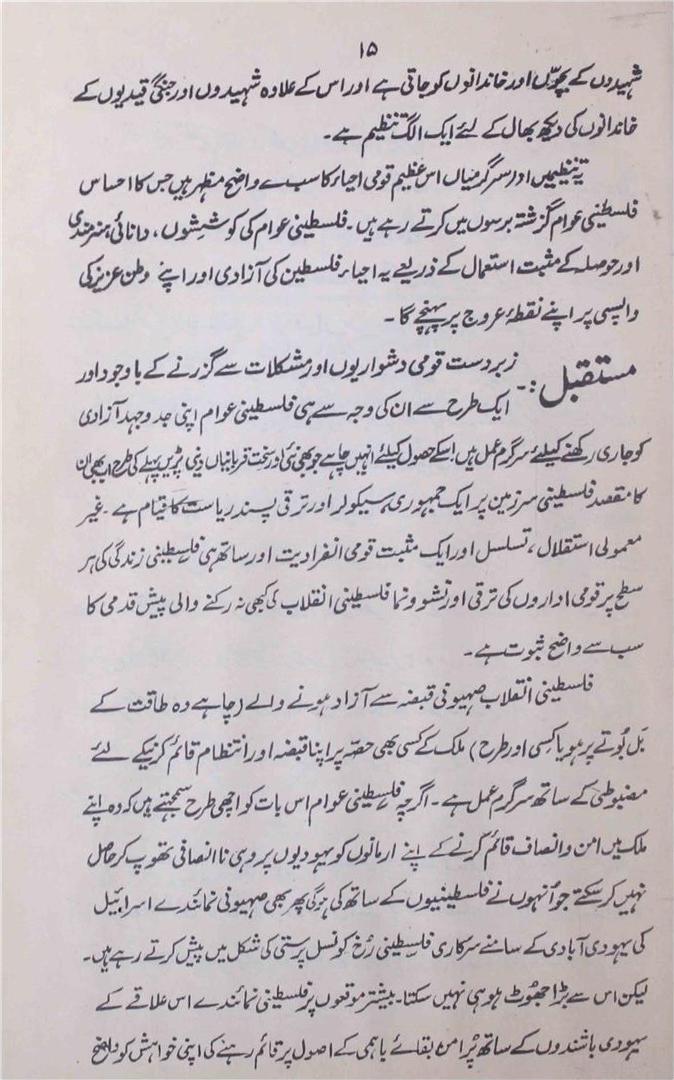 ۱۵
شہیدوں کے بچوّں اور خاندانوں کو جاتی ہے اور اس کے علاوہ شہیدوں اور جنگی قیدیوں کے
خاندانوں کی دیکھ بھال کے لئے ایک الگ تنظیم ہے۔
یہ تنظیمیں اور سرگرمیاں اس عظیم قومی احیاء کا سب سے واضح مظہر ہیں جس کا احساس
فلسطینی عوام گزشتہ برسوں میں کرتے رہے ہیں۔ فلسطینی عوام کی کوششوں، دانائی، ہنرمندی
اور حوصلہ کے مثبت استعمال کے ذریعے یہ احیاء فلسطین کی آزادی اور اپنے وطن عزیز کی
واپسی پر اپنے نقطۂ عروج پر پہنچے گا۔
مستقبل :۔ زبردست قومی دشواریوں اور مشکلات سے گزرنے کے باوجود اور
ایک طرح سے ان کی وجہ سے ہی فلسطینی عوام اپنی جدوجہد آزادی
کو جاری رکھنے کیلئے سرگرم عمل ہیں اسکے حصول کیلئے انہیں چاہے جو بھی نئی اور سخت قربانیاں دینی پڑیں پہلے کی طرح اب بھی ان
کا مقصد فلسطینی سرزمین پر ایک جمہوری، سیکولر اور ترقی پسند ریاست کا قیام ہے۔ غیر
معمولی استقلال، تسلسل اور ایک مثبت قومی انفرادیت اور ساتھ ہی فلسطینی زندگی کی ہر
سطح پر قومی اداروں کی ترقی اور نشوونما فلسطینی انقلاب کی کبھی نہ رکنے والی پیش قدمی کا
سب سے واضح ثبوت ہے۔
فلسطینی انقلاب صہیونی قبضہ سے آزاد ہونے والے (چاہے وہ طاقت کے
بَل بُوتے پر ہو یا کسی اور طرح) ملک کے کسی بھی حصّہ پر اپنا قبضہ اور انتظام قائم کرنیکے لئے
مضبوطی کے ساتھ سرگرم عمل ہے۔ اگرچہ فلسطینی عوام اس بات کو اچھی طرح سمجھتے ہیں کہ وہ اپنے
ملک میں امن و انصاف قائم کرنے کے اپنے ارمانوں کو یہودیوں پر وہی ناانصافی تھوپ کر حاصل
نہیں کر سکتے جو اُنہوں نے فلسطینیوں کے ساتھ کی ہو گی پھر بھی صہیونی نمائندے اسرائیل
کی یہودی آبادی کے سامنے سرکاری فلسطینی رُخ کو نسل پرستی کی شکل میں پیش کرتے رہے ہیں۔
لیکن اس سے بڑا جھُوٹ ہو ہی نہیں سکتا۔ بیشتر موقعوں پر فلسطینی نمائندے اس علاقے کے
یہودی باشندوں کے ساتھ پُر امن بقائے باہمی کے اصول پر قائم رہنے کی اپنی خواہش کو واضح